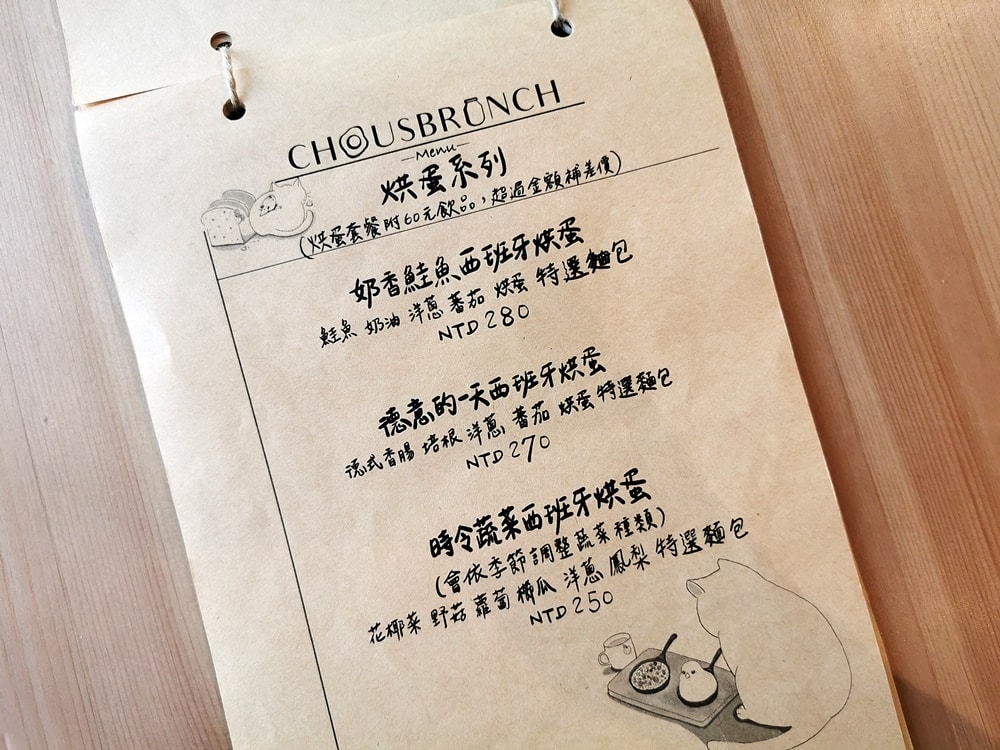 CHOUSBRUNCH
Menu
烘蛋系列
(烘蛋套餐附60元飲品，超過金額補差價)
奶香鮭魚西班牙烘蛋
鮭魚 奶油 洋蔥 蕃茄 烘蛋 特選麵包
NTD 280
德意的一天西班牙烘蛋
德式香腸 培根 洋蔥 蕃茄 烘蛋 特選麵包
NTD 270
時令蔬菜西班牙烘蛋
(會依季節調整蔬菜種類)
花椰菜 野菇 蘿蔔 櫛瓜 洋蔥 鳳梨 特選麵包
NTD 250